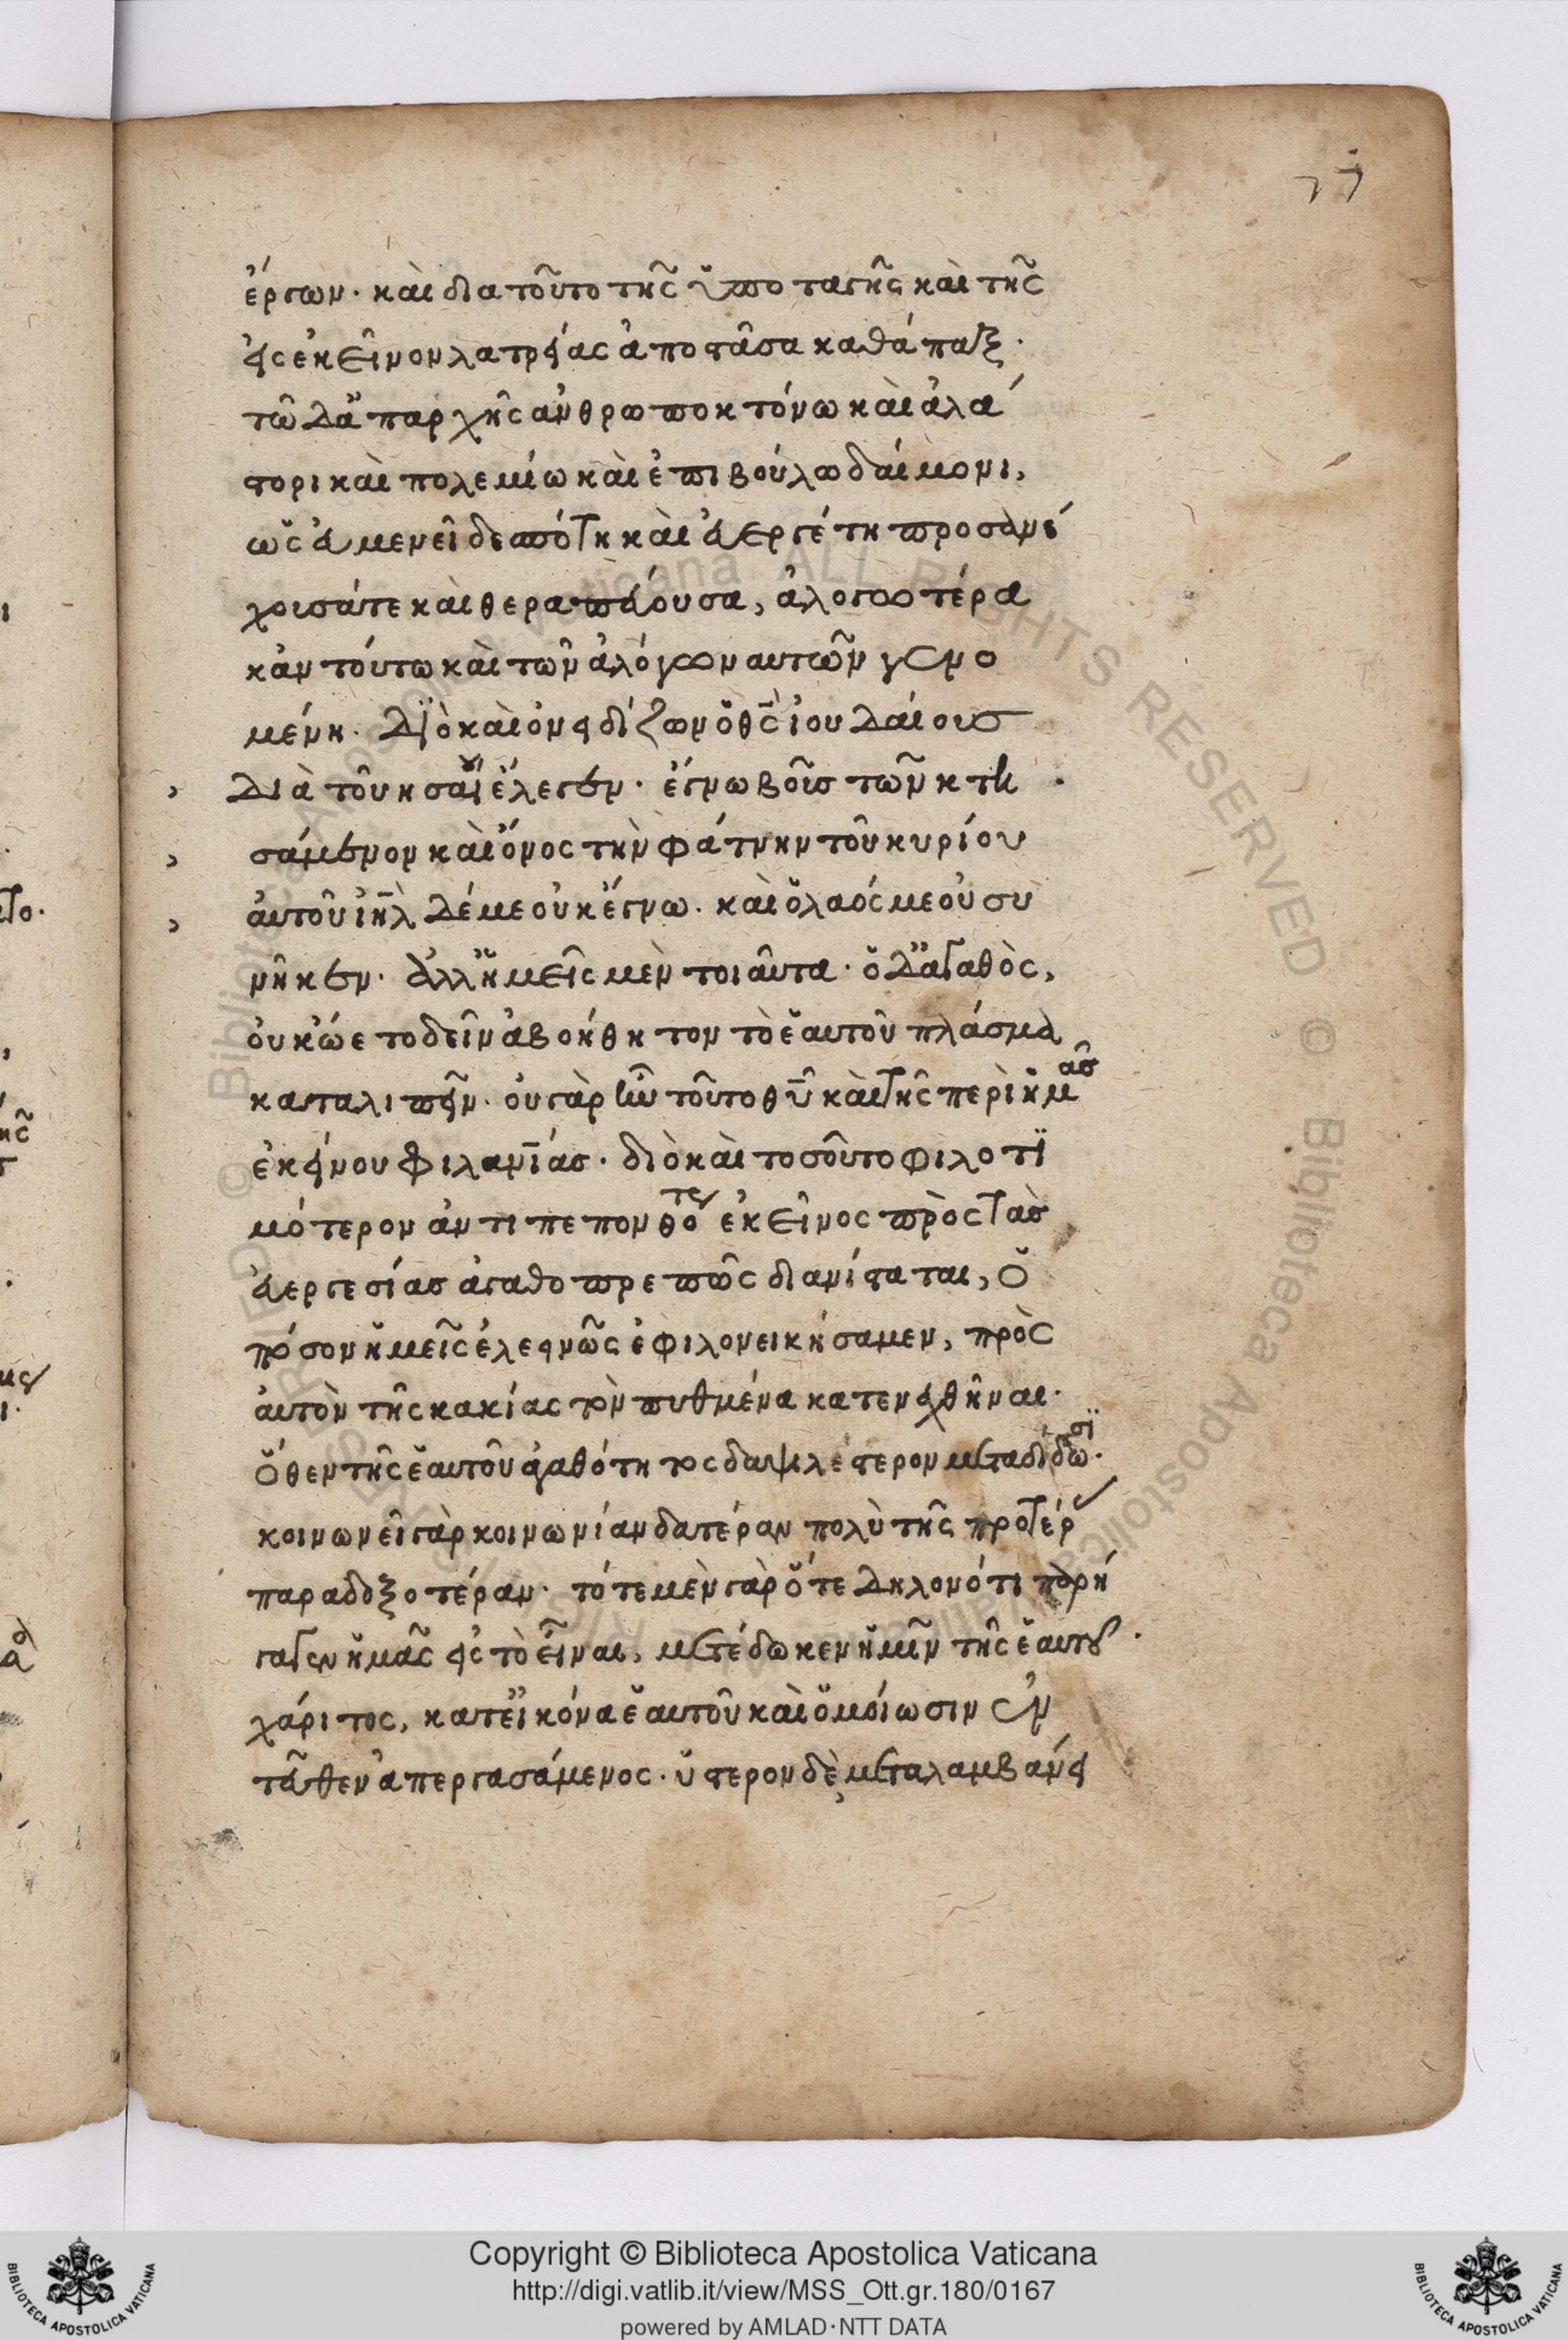 77
ἔργων· καὶ δια τοῦτο τῆς ὑποταγῆς καὶ τῆς
εἰς ἐκεῖνον λατρείας ἀποστᾶσα καθάπαξ·
τῶ δ' ἀπαρχῆς ἀνθρωποκτόνω καὶ ἀλά
στορι καὶ πολεμίω καὶ ἐπιβούλω δαίμονι,
ὡς εὐμενεῖ δεσπότη καὶ εὐεργέτη προσανέ
χουσάτε καὶ θεραπεύουσα, ἀλογωτέρα
κἀν τούτω καὶ τῶν ἀλόγων αυτῶν γενο
μένη. Διὸ καὶ ὀνειδίζων ὁ θς ἰουδαίους
διὰ τοῦ ησαΐου ἔλεγεν· ἔγνω βοῦς τὸν κτη
σάμενον καὶ ὄνος τὴν φάτνην τοῦ κυρίου
ἀυτοῦ ἰηλ δέ με οὐκ ἔγνω. καὶ ὁ λαός με οὐ συ
νῆκεν. ἀλλ' ἡμεῖς μὲν τοιαῦτα· ὁ δ' ἀγαθὸς,
οὐκ ώετο δεῖν ἀβοήθητον τὸ ἑαυτοῦ πλάσμα
καταλιπεῖν. οὐ γὰρ ἦν τοῦτο θυ καὶ τῆς περὶ ἡμᾶς
ἐκείνου φιλανίας. διὸ καὶ τοσοῦτο φιλοτι
μότερον ἀντιπεπονθότως ἐκεῖνος πρὸς τὰς
εὐεργεσίας ἀγαθοπρεπῶς διανίσταται, ὁ
πόσον ἡμεῖς ἐλεεινῶς ἐφιλονεικήσαμεν, πρὸς
ἀυτὸν τῆς κακίας τὸν πυθμένα κατενεχθῆναι.
ὅθεν τῆς ἑαυτοῦ ἀγαθότητος δαψιλέστερον μεταδίδωσι.
κοινωνεῖ γὰρ κοινωνίαν δευτέραν πολὺ τῆς προτέρας
παραδοξοτέραν. τότε μὲν γὰρ ὅτε δηλονότι παρή
γαγεν ἡμᾶς εἰς τὸ εἶναι, μετέδωκεν ἡμῖν τῆς ἑαυτοῦ
χάριτος, κατ' εἰκόνα ἑαυτοῦ καὶ ὁμοίωσιν ἐν
ταῦθεν ἀπεργασάμενος. ὕστερον δὲ μεταλαμβάνει
© Biblioteca Apostolica Vaticana ALL RIGHTS RESERVED
Copyright © Biblioteca Apostolica Vaticana
http://digi.vatlib.it/view/MSS_Ott.gr.180/0167
powered by AMLAD·NTT DATA
BIBLIOTECA APOSTOLICA VATICANA
BIBLIOTECA APOSTOLICA VATICANA